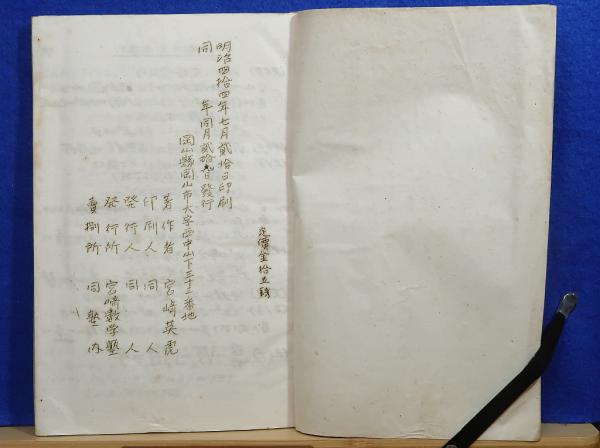 定價金拾五錢
明治四拾四年七月貳拾日印刷
同 年同月貳拾九日發行
岡山縣岡山市大字西中山下三十二番地
著作者 宮崎英虎
印刷人 同人
発行人 同人
発行所 宮崎数学塾
賣捌所 同塾内